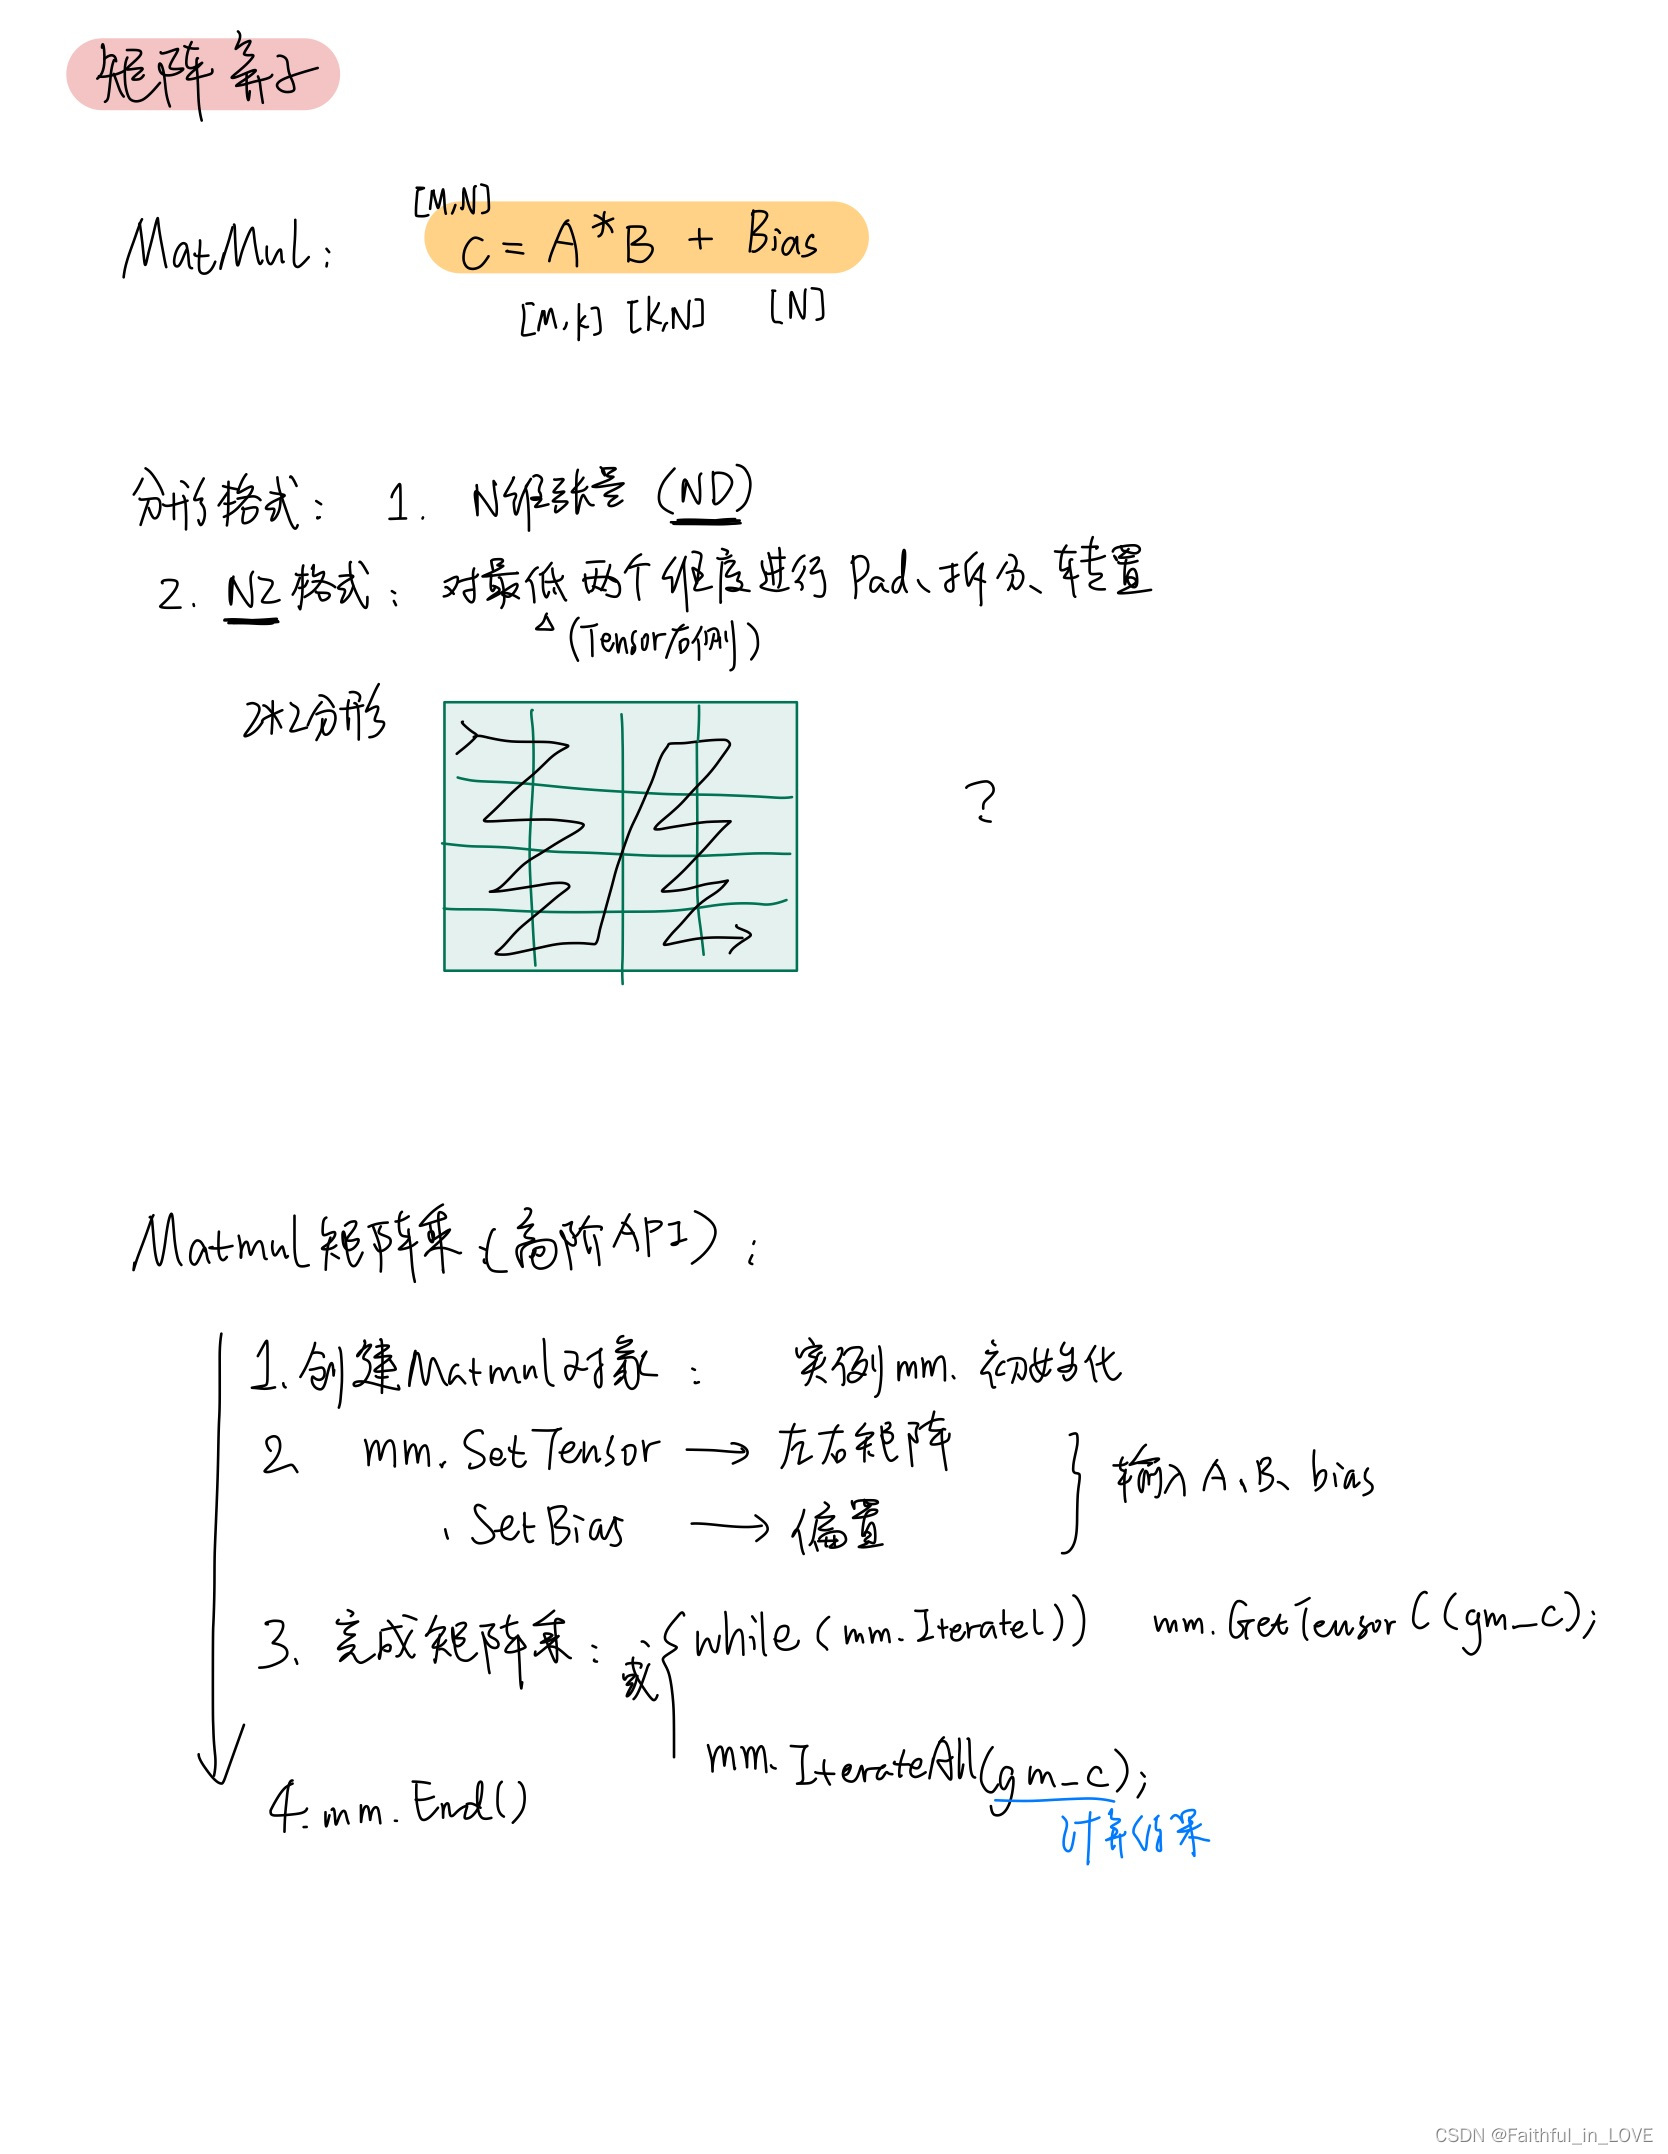 矩阵算子
[M,N]
MatMul: C = A * B + Bias
[M,k] [k,N] [N]
分形格式: 1. N维张量 (ND)
2. NZ格式: 对最低两个维度进行Pad、拆分、转置
△ (Tensor右侧)
2*2分形
?
Matmul矩阵乘(高阶API):
1.创建Matmul对象: 实例mm.初始化
2 mm.SetTensor → 左右矩阵
.SetBias → 偏置
} 输入A、B、bias
3. 完成矩阵乘: 或 { while(mm.Iterate()) mm.GetTensor((gm_c);
mm.IterateAll(gm_c);
计算结果
4.mm.End()
CSDN @Faithful_in_LOVE